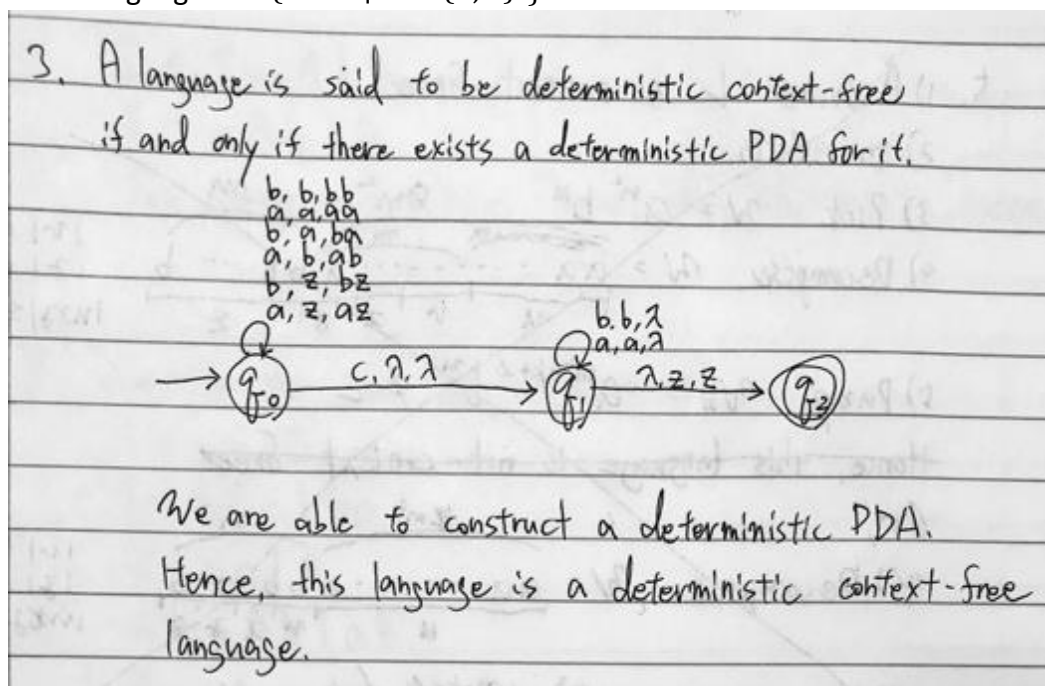 3. A language is said to be deterministic context-free
if and only if there exists a deterministic PDA for it.
b, b, bb
a, a, aa
b, a, ba
a, b, ab
b, z, bz
a, z, az
b. b, λ
a, a, λ
c, λ, λ
λ, z, z
q0
q1
q2
We are able to construct a deterministic PDA.
Hence, this language is a deterministic context-free
language.